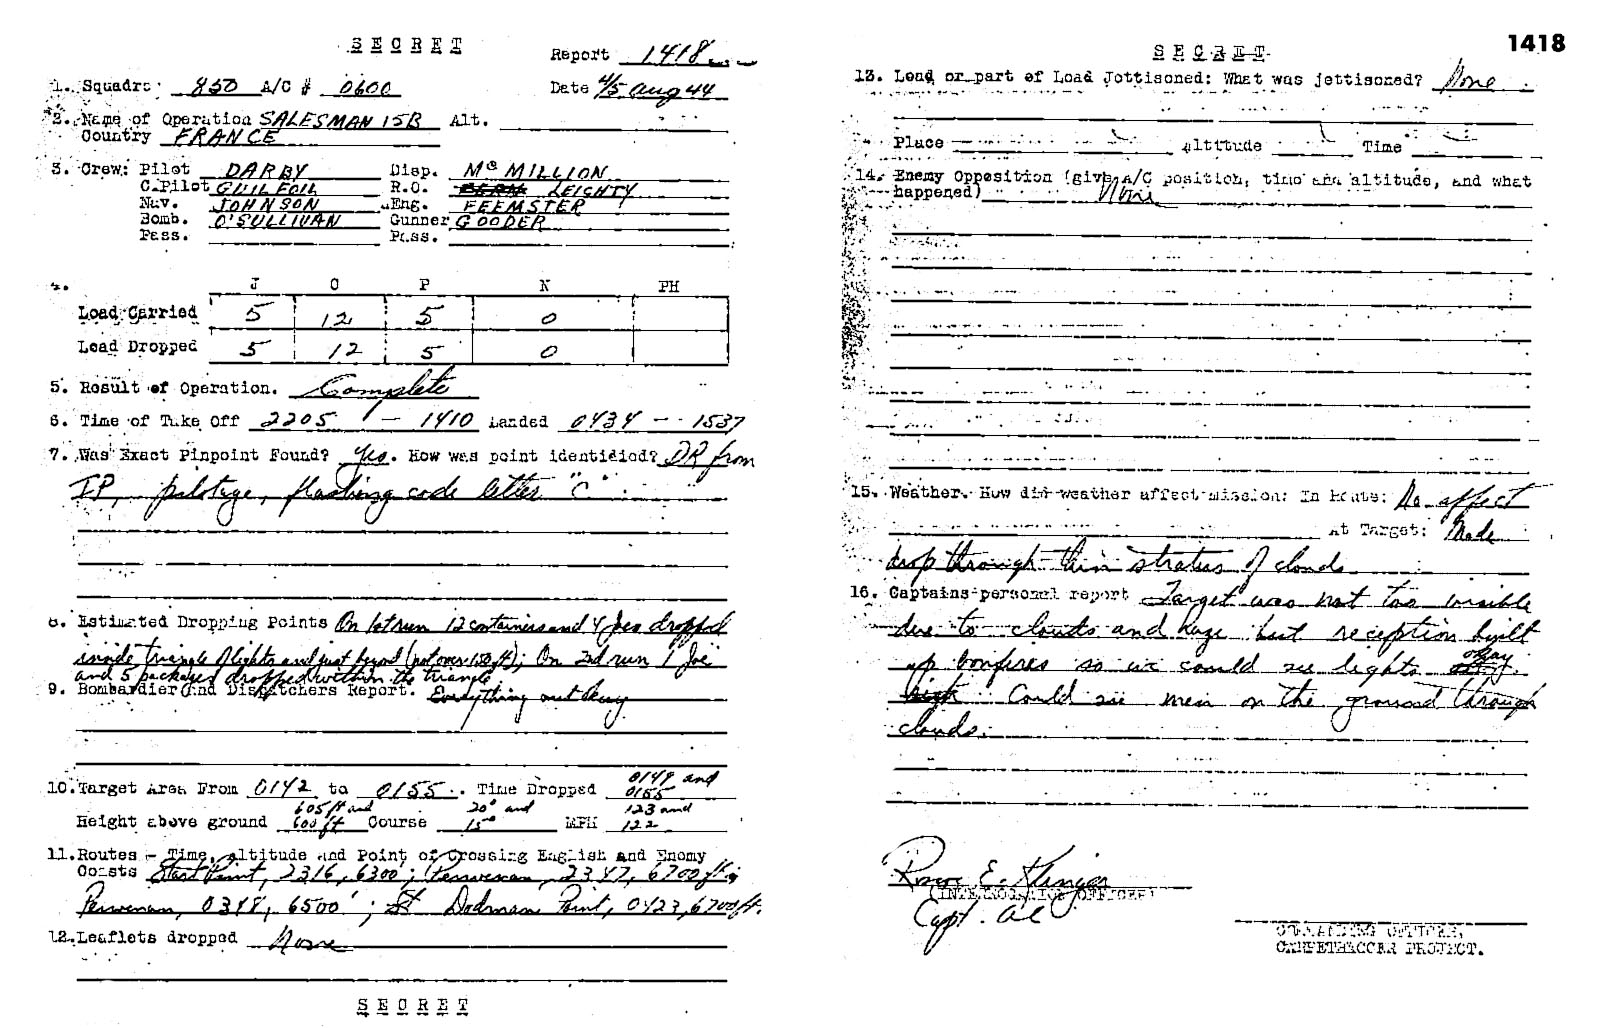 SECRET
Report 1418
1. Squadron 850 A/C # 0600 Date 4/5 Aug 44
2. Name of Operation SALESMAN 15B Alt.
Country FRANCE
3. Crew: Pilot DARBY Disp. McMILLION
C.Pilot GUILFOIL R.O. LEIGHTY
Nav. JOHNSON Eng. FEEMSTER
Bomb. O'SULLIVAN Gunner GOODER
Pass. Pass.
4. J C P N PH
Load Carried 5 12 5 0
Load Dropped 5 12 5 0
5. Result of Operation. Complete
6. Time of Take Off 2205 - 1410 Landed 0434 -- 1537
7. Was Exact Pinpoint Found? Yes. How was point identified? DR from
I.P., pilotage, flashing code letter "C".
8. Estimated Dropping Points On 1st run 12 containers and 4 Joes dropped
inside triangle of lights and just beyond (not over 150 ft); On 2nd run 1 Joe
and 5 packages dropped within the triangle
9. Bombardier and Dispatchers Report. Everything out okay
10. Target Area From 0142 to 0155. Time Dropped 0149 and
0155
Height above ground 605 ft and 600 ft Course 20° and 15° MPH 123 and 122
11. Routes - Time, altitude and Point of Crossing English and Enemy
Coasts Start Point, 2316, 6300'; Penvenan, 2347, 6700 ft;
Penvenan, 0348, 6500'; Dodman Point, 0423, 6700 ft.
12. Leaflets dropped None
SECRET
1418
SECRET
13. Load or part of Load Jettisoned: What was jettisoned? None
Place Altitude Time
14. Enemy Opposition (give A/C position, time and altitude, and what
happened) None
15. Weather. How did weather affect mission: In Route: No affect
At Target: Made
drop through thin stratus of clouds
16. Captains personal report Target was not too visible
due to clouds and haze but reception built
up bonfires so we could see lights okay.
Could see men on the ground through
clouds.
(INTELLIGENCE OFFICER)
Capt. AC
COMMANDING OFFICER,
CARPETBAGGER PROJECT.